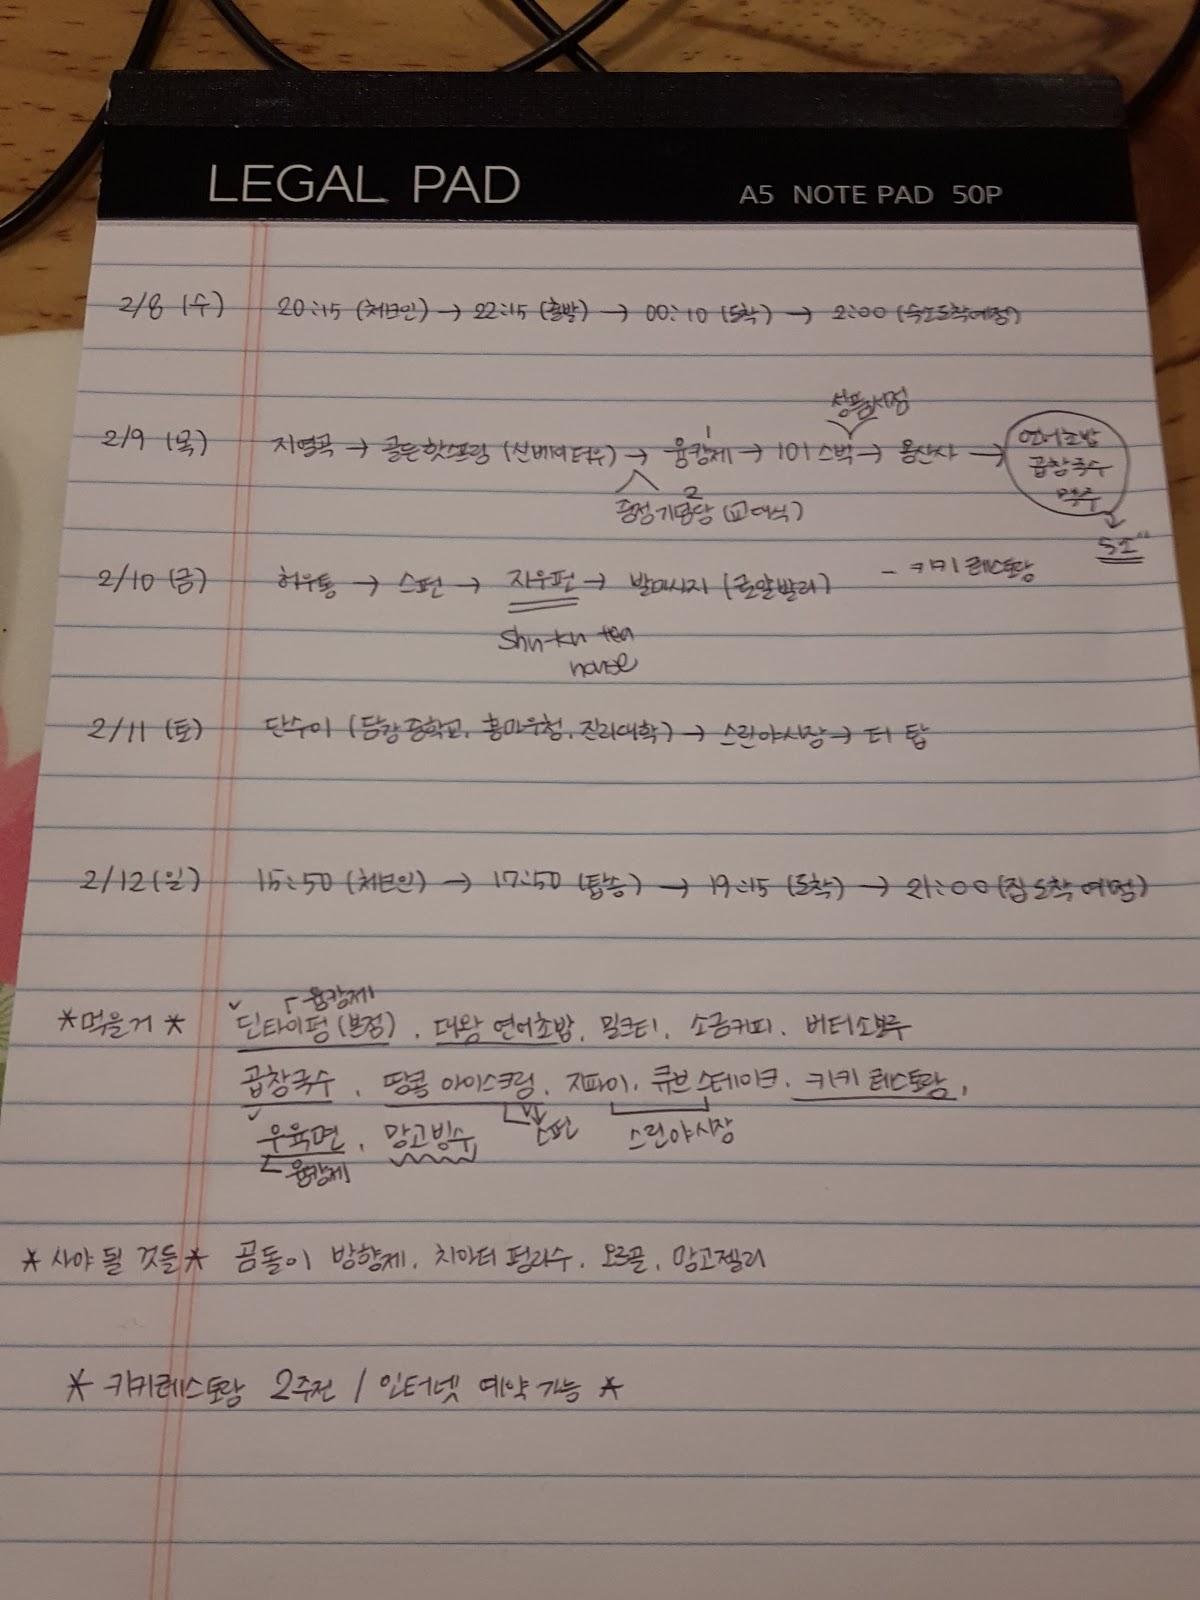 LEGAL PAD
A5 NOTE PAD 50P
2/8 (수) 20:15 (체크인) → 22:15 (출발) → 00:10 (도착) → 2:00 (숙소도착예정)
성품서점
2/9 (목) 지열곡 → 골든핫스프링 (신베이터우) → 융캉제 → 101 스벅 → 용산사 → 연어초밥
곱창국수
맥주
1
2
중정기념당 (교대식)
숙소
2/10 (금) 허우통 → 스펀 → 지우펀 → 발마사지 (로얄발리) - 키키레스토랑
Shu-Ku tea
house
2/11 (토) 단수이 (담강중학교, 홍마우청, 진리대학) → 스린야시장 →
2/12 (일) 15:50 (체크인) → 17:50 (탑승) → 19:15 (도착) → 21:00 (집도착예정)
융캉제
*먹을거* 딘타이펑 (본점), 대왕 연어초밥, 밀크티, 소금커피, 버터소보루
곱창국수, 땅콩 아이스크림, 지파이, 큐브 스테이크, 키키 레스토랑,
스펀 스린야시장
우육면, 망고빙수
융캉제
*사야 될 것들* 곰돌이 방향제, 치아더 펑리수, 오르골, 망고젤리
*키키레스토랑 2주전 / 인터넷 예약 가능*